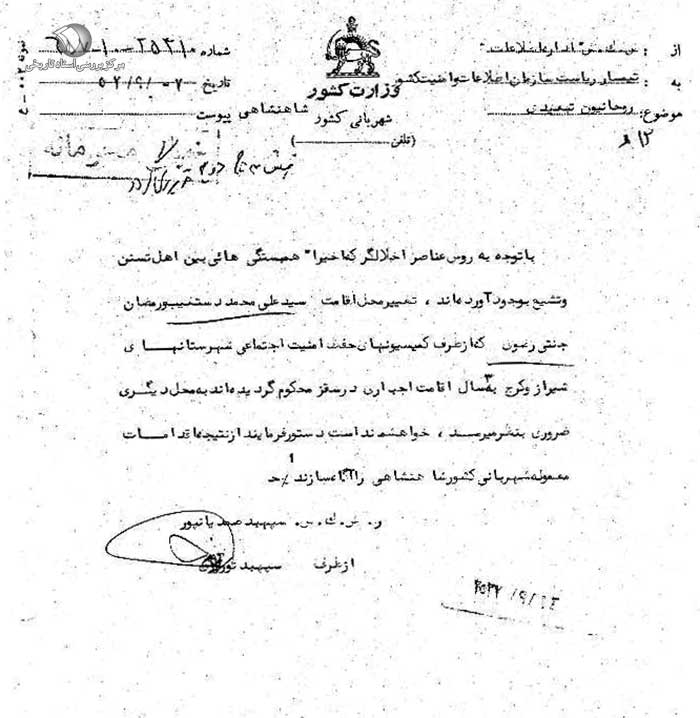 از : ش ك ش" اداره اطلاعات "
به : تیمسار ریاست سازمان اطلاعات وامنیت کشور
موضوع : روحانیون تبعیدی
وزارت کشور
شهربانی کشور شاهنشاهی
(تلفن)
شماره
تاریخ ۵۲/۹/۰۷
پیوست
مرکز بررسی اسناد تاریخی
محرمانه
باتوجه به روش عناصر اخلالگر که اخیرا" همبستگی هائی بین اهل تسنن
وتشیع بوجود آورده اند ، تغییر محل اقامت سید علی محمد دستغیب و رمضان
جنتی رضوی که از طرف کمیسیونهای حفظ امنیت اجتماعی شهرستانهای
شیراز و کرج به ۳ سال اقامت اجباری در سقز محکوم گردیده اند به محل دیگری
ضروری بنظر میرسد ، خواهشمند است دستور فرمایند از نتیجه اقدامات
معموله شهربانی کشور شاهنشاهی را آگاه سازند
ر. ش. ك. ش. سپهبد صمدیانپور
از طرف سپهبد